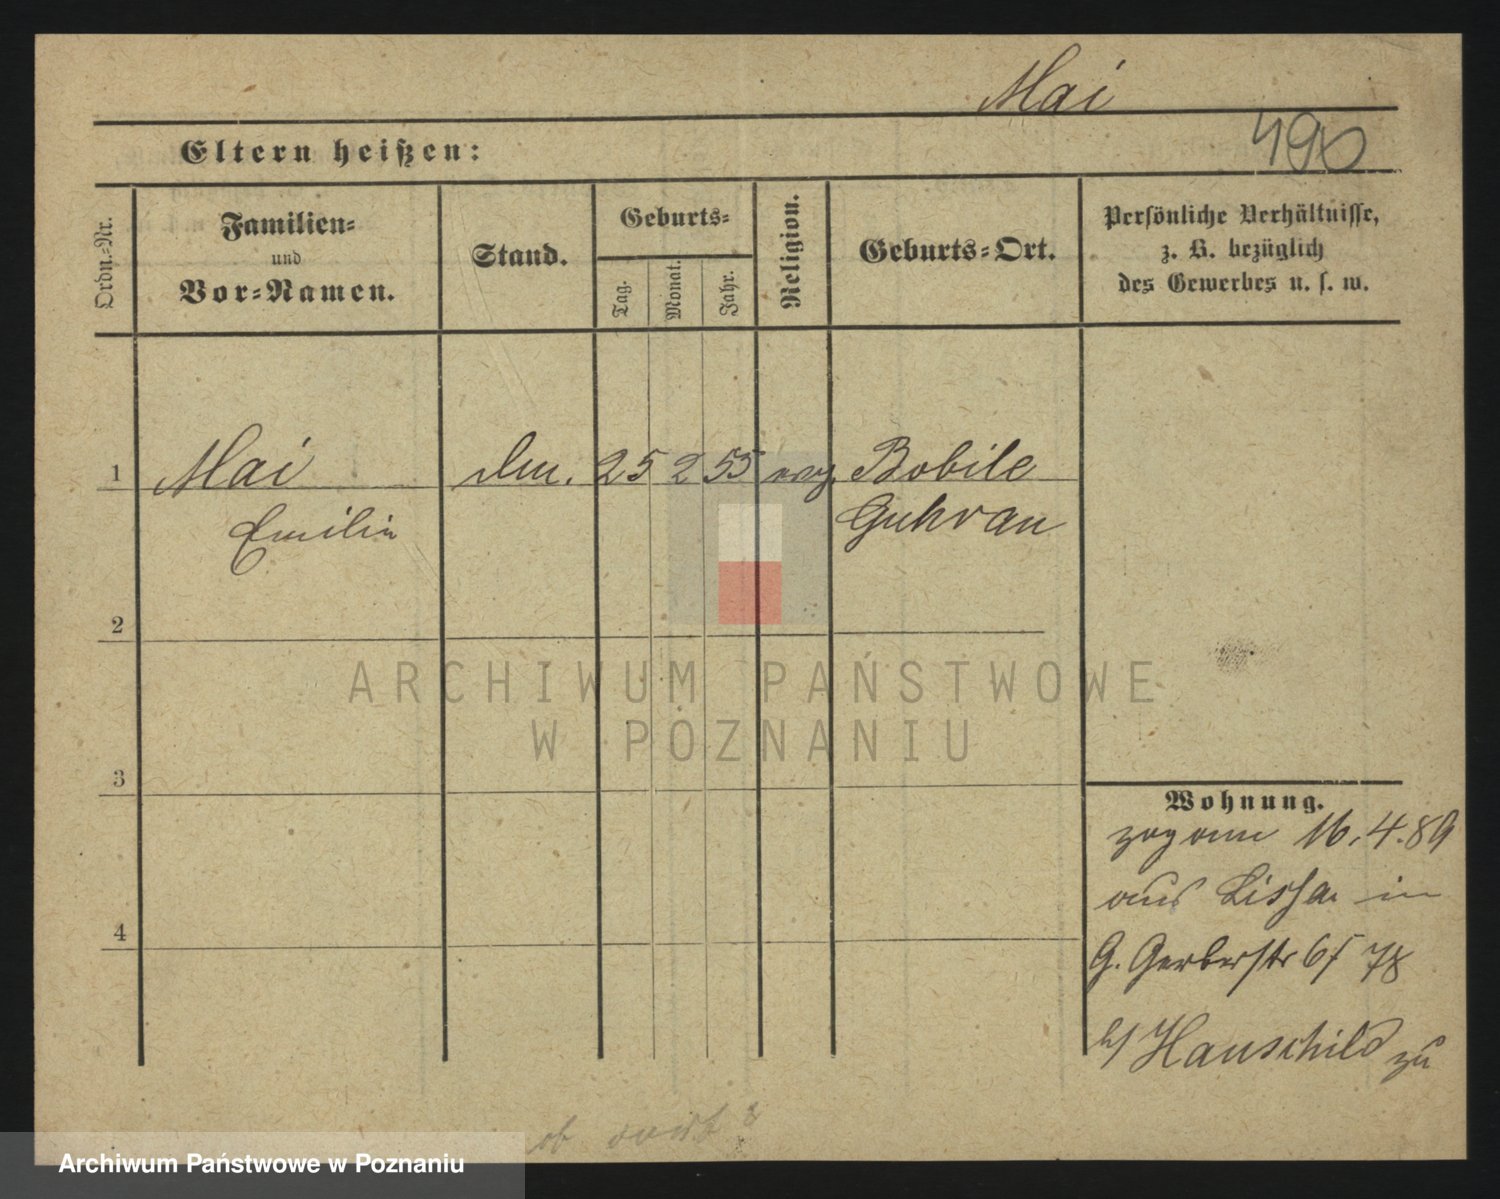 Mai
490
Eltern heißen:
Ordn.-Nr.
Familien-
und
Vor-Namen.
Stand.
Geburts-
Tag.
Monat.
Jahr.
Religion.
Geburts-Ort.
Persönliche Verhältnisse,
z. B. bezüglich
des Gewerbes u. s. w.
1 Mai 25 2 55 evg. Bobile
Emilie Guhrau
2
3
4
Wohnung.
zog am 16.4.89
aus Lissa in
G. Gerberstr 6 f 78
b/ Hauschild zu
ARCHIWUM PAŃSTWOWE
W POZNANIU
Archiwum Państwowe w Poznaniu